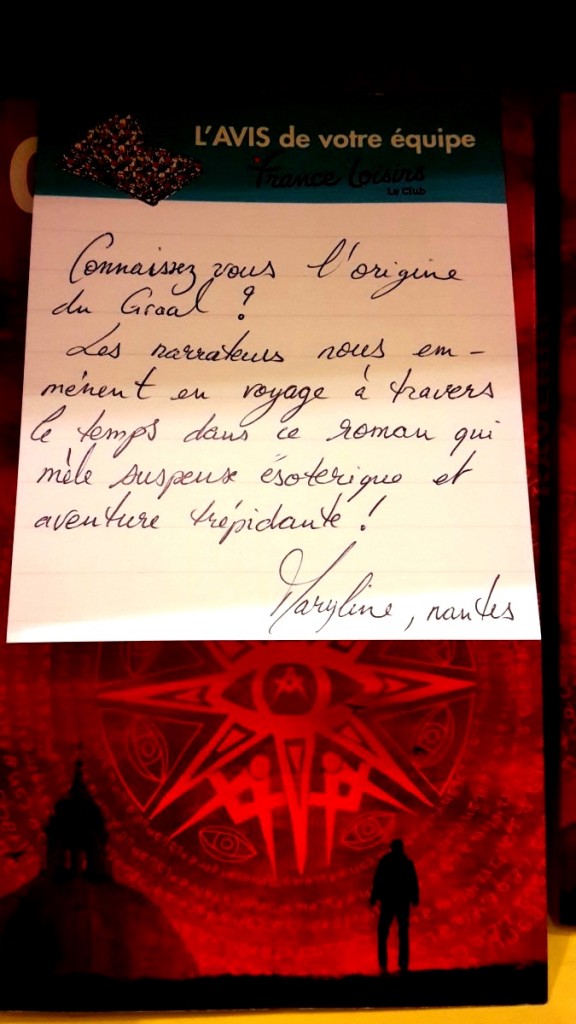 L'AVIS de votre équipe
France Loisirs
Le Club
Connaissez vous l'origine
du Graal ?
Les narrateurs nous em-
mènent en voyage à travers
le temps dans ce roman qui
mêle suspense ésotérique et
aventure trépidante !
Maryline, nantes